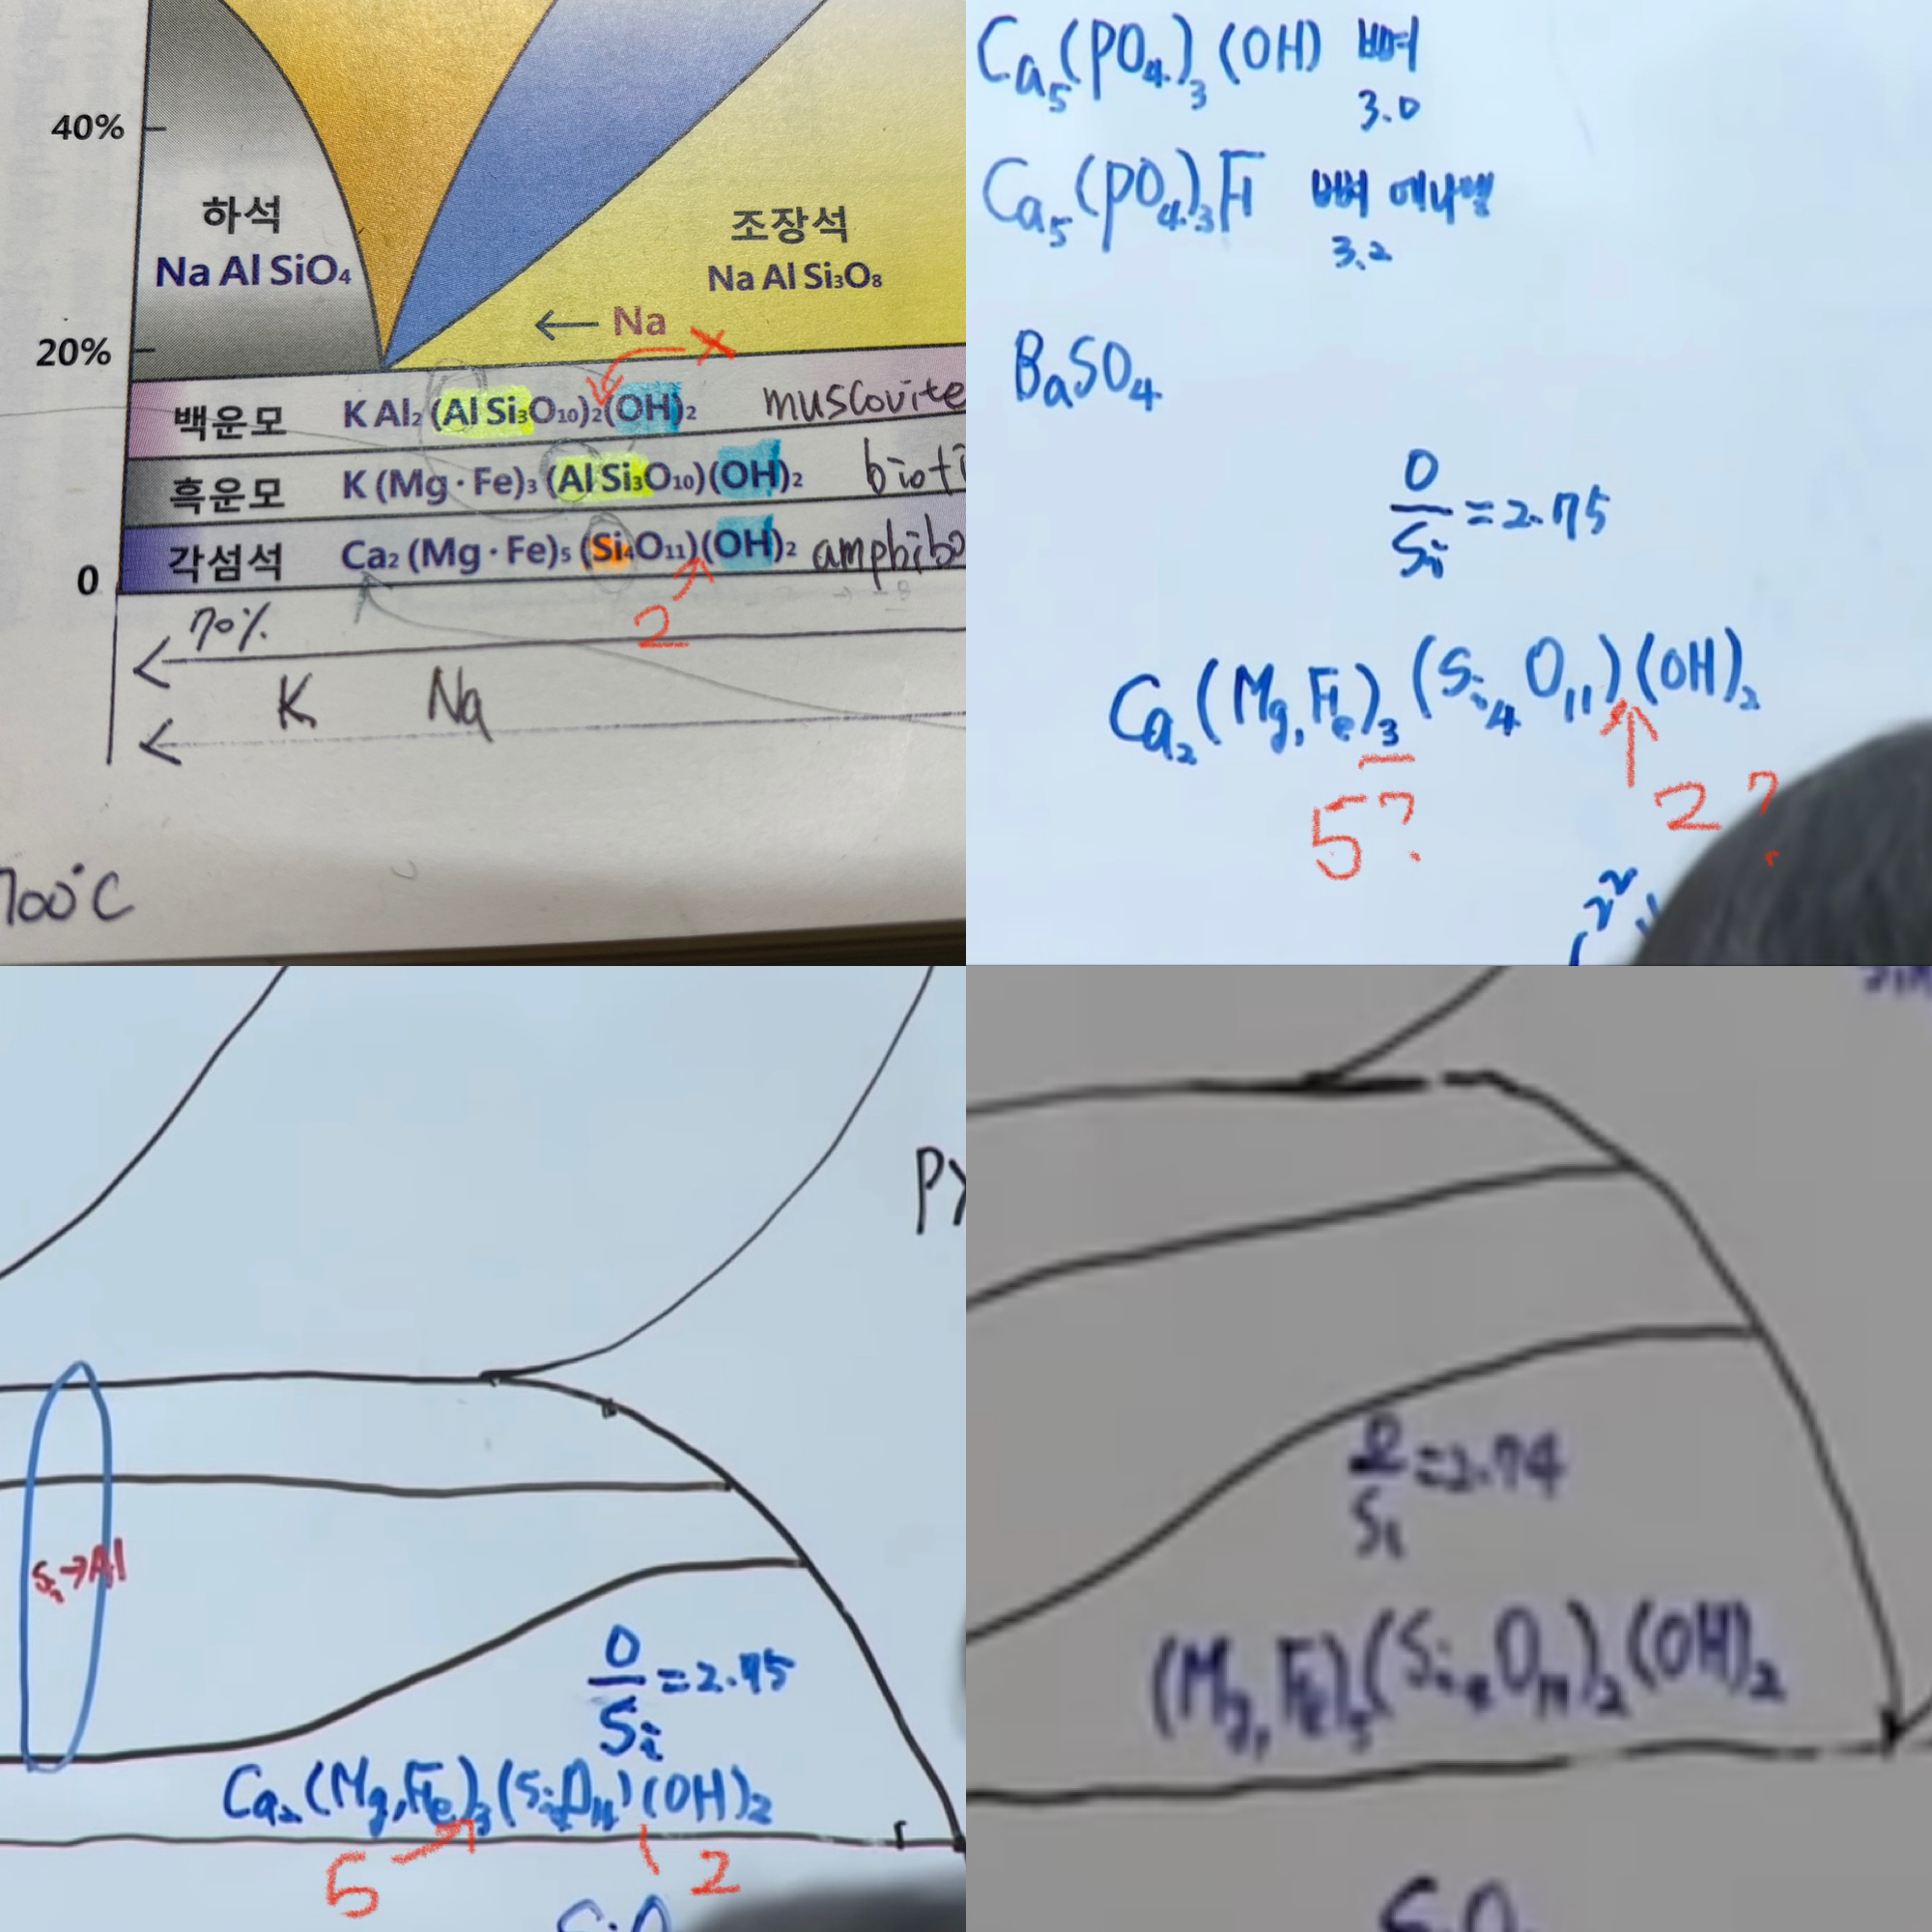 40%
하석
Na Al SiO₄
조장석
Na Al Si₃O₈
← Na
20%
백운모 K Al₂ (Al Si₃O₁₀)₂(OH)₂ muscovite
흑운모 K (Mg · Fe)₃ (Al Si₃O₁₀)(OH)₂ bioti
각섬석 Ca₂ (Mg · Fe)₅ (Si₄O₁₁)(OH)₂ amphibo
0
2
70%
K Na
700°C
Ca₅(PO₄)₃(OH) 뼈
3.0
Ca₅(PO₄)₃F 뼈 에나멜
3.2
BaSO₄
O/Si = 2.75
Ca₂(Mg,Fe)₃(Si₄O₁₁)(OH)₂
5? 2?
Py
Si→Al
O/Si = 2.75
Ca₂(Mg,Fe)₃(Si₄O₁₁)(OH)₂
5 2
O/Si = 2.74
(Mg,Fe)₅(Si₄O₁₁)₂(OH)₂